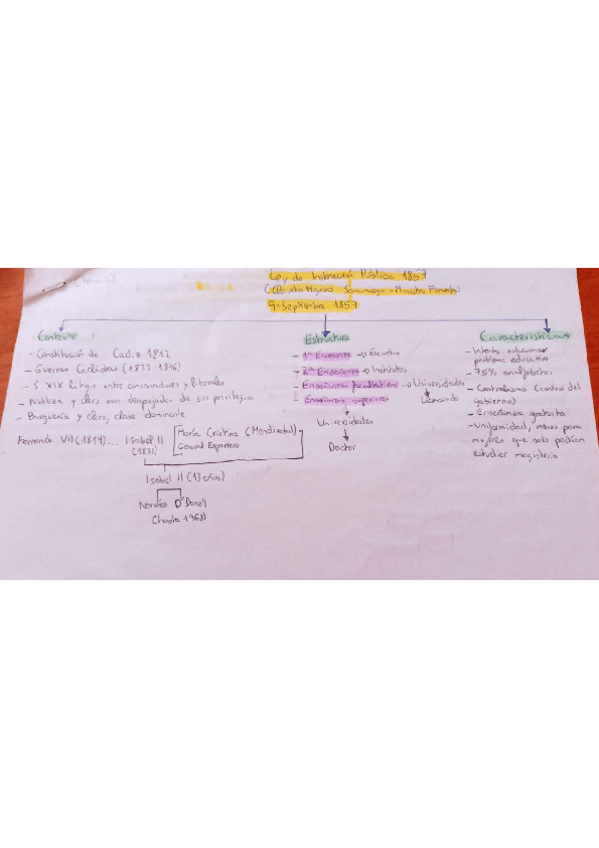 Ley de Instrucción Pública 1857
(Claudio Moyano Samaniego - Ministro Fomento)
9-Septiembre 1857
Contexto
- Constitución de Cadiz 1812
- Guerras Carlistas (1833-1876)
- S XIX litigio entre conservadores y liberales
- Nobleza y clero son despojados de sus privilegios
- Burguesía y clero, clase dominante
Fernando VII (1814)... Isabel II
(1833)
María Cristina (Mendizabal)
General Espartero
Isabel II (13 años)
Narváez O'Donell
(hasta 1968)
Estructura
- 1ª Enseñanza → Escuelas
- 2ª Enseñanza → Institutos
- Enseñanzas facultativas → Universidades
Licenciado
- Enseñanza superiores
Universidades
Doctor
Características
- Intento solucionar
problema educativo
- 75% analfabetos
- Centralismo (control del
gobierno)
- Enseñanza gratuita
- Uniformidad, menos para
mujeres que solo podían
estudiar magisterio